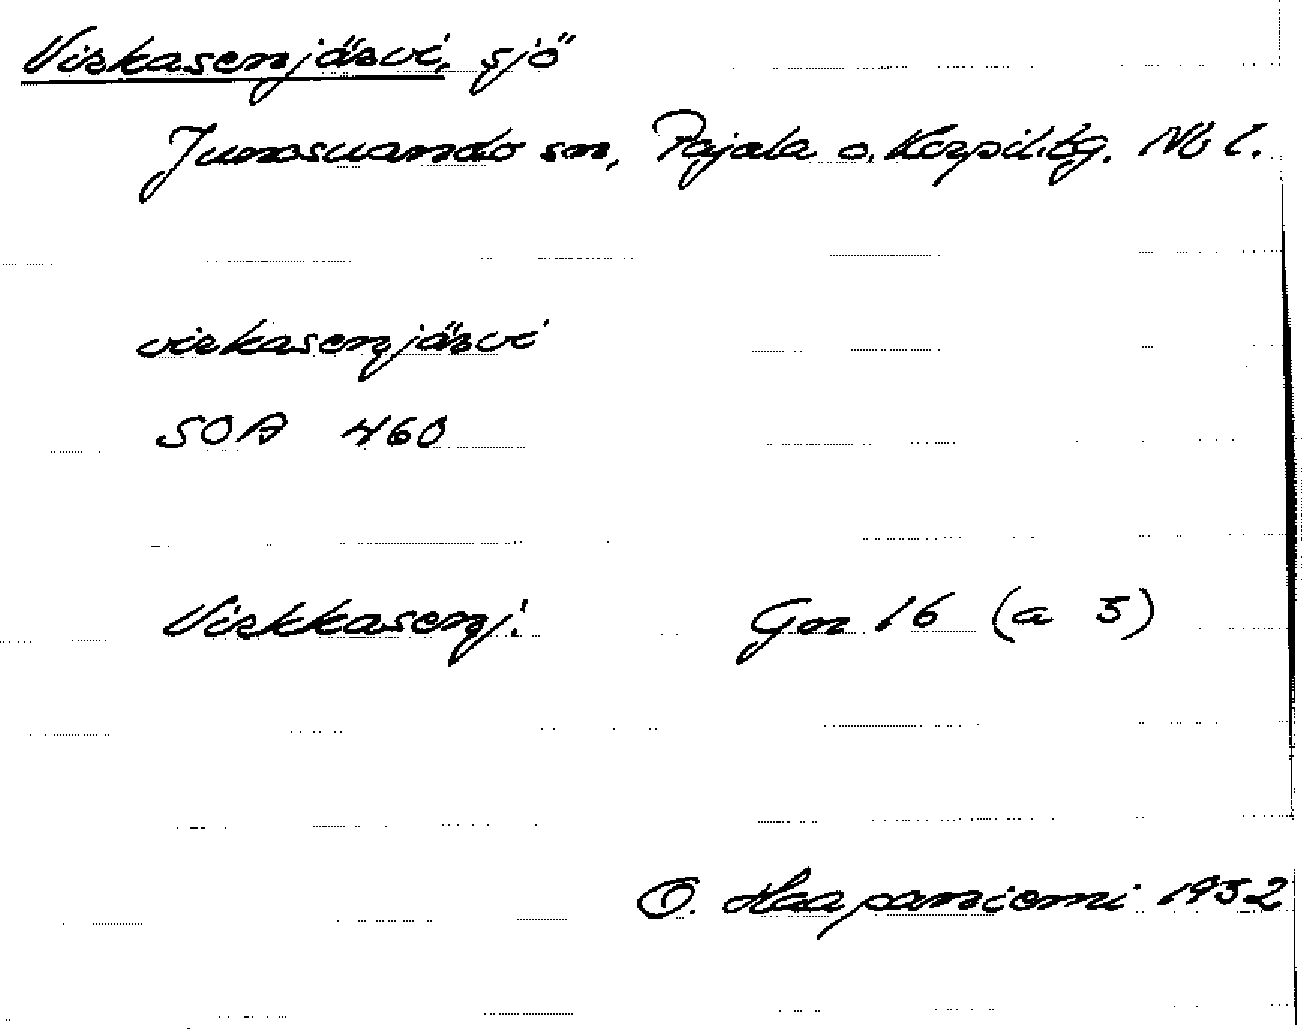 Virkasenjärvi, sjö
Junosuando sn, Pajala o. Korpil. tg. Nb l.
virkasenjärvi
SOA 460
Virkkasenj.  Gn 16 (a 5)
O. Haapaniemi 1932